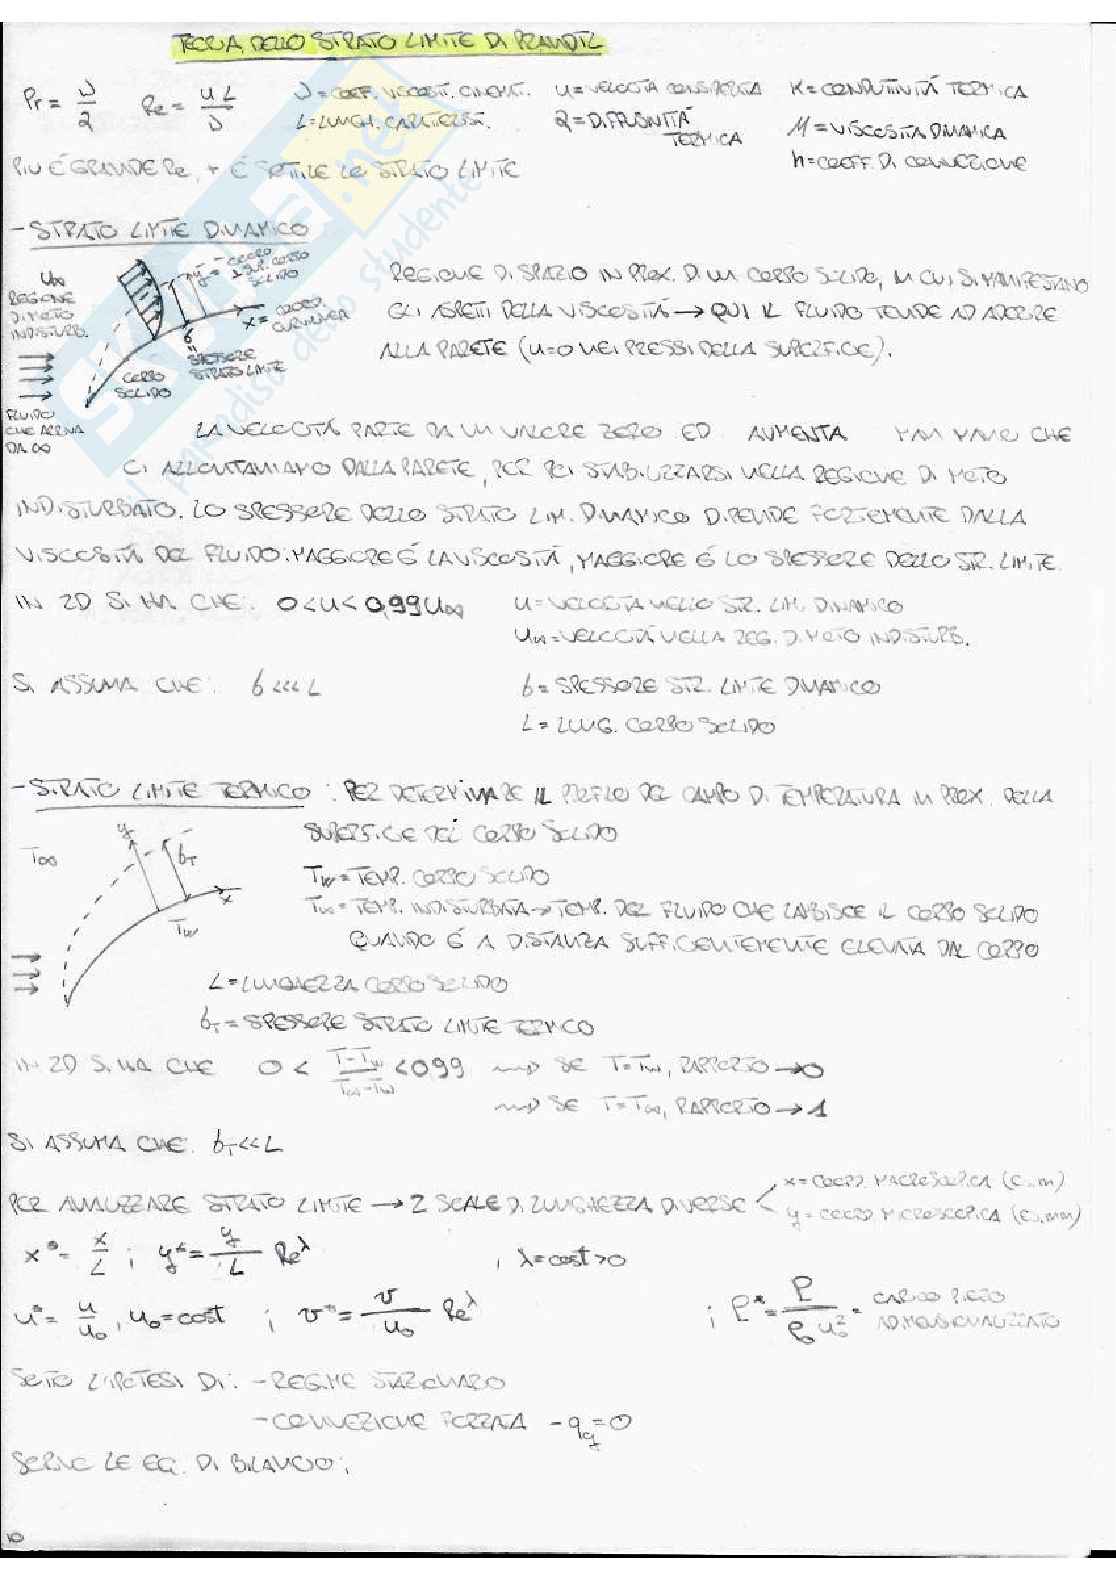 TEORIA DELLO STRATO LIMITE DI PRANDTL
Pr = ν/α   Re = uL/ν   ν = COEFF. VISCOSIT. CINEMT.   u = VELOCITÀ CONSIDERATA   K = CONDUTTIVITÀ TERMICA
L = LUNGH. CARATTERIST.   α = DIFFUSIVITÀ TERMICA   M = VISCOSITÀ DINAMICA
h = COEFF. DI CONVEZIONE
PIÙ È GRANDE Re, + È SOTTILE LO STRATO LIMITE
- STRATO LIMITE DINAMICO
U∞
REGIONE
DI MOTO
INDISTURB.
FLUIDO
CHE ARRIVA
DA ∞
y = COORD. ⊥ SUP. CORPO SOLIDO
x = COORD. CURVILINEA
δ = SPESSORE STRATO LIMITE
CORPO SOLIDO
REGIONE DI SPAZIO IN PROX. DI UN CORPO SOLIDO, IN CUI SI MANIFESTANO
GLI ASPETTI DELLA VISCOSITÀ → QUI IL FLUIDO TENDE AD ADERIRE
ALLA PARETE (u=0 NEI PRESSI DELLA SUPERFICIE).
LA VELOCITÀ PARTE DA UN VALORE ZERO ED AUMENTA MAN MANO CHE
CI ALLONTANIAMO DALLA PARETE, PER POI STABILIZZARSI NELLA REGIONE DI MOTO
INDISTURBATO. LO SPESSORE DELLO STRATO LIM. DINAMICO DIPENDE FORTEMENTE DALLA
VISCOSITÀ DEL FLUIDO. MAGGIORE È LA VISCOSITÀ, MAGGIORE È LO SPESSORE DELLO STR. LIMITE.
IN 2D SI HA CHE: 0 < u < 0,99 U∞   u = VELOCITÀ NELLO STR. LIM. DINAMICO
U∞ = VELOCITÀ NELLA REG. DI MOTO INDISTURB.
SI ASSUMA CHE: δ <<< L   δ = SPESSORE STR. LIMITE DINAMICO
L = LUNG. CORPO SOLIDO
- STRATO LIMITE TERMICO: PER DETERMINARE IL PROFILO DEL CAMPO DI TEMPERATURA IN PROX. DELLA
SUPERFICIE DEL CORPO SOLIDO
T∞   y   δT   x   Tw
Tw = TEMP. CORPO SOLIDO
T∞ = TEMP. INDISTURBATA → TEMP. DEL FLUIDO CHE LAMBISCE IL CORPO SOLIDO
QUANDO È A DISTANZA SUFFICIENTEMENTE ELEVATA DAL CORPO
L = LUNGHEZZA CORPO SOLIDO
δT = SPESSORE STRATO LIMITE TERMICO
IN 2D SI HA CHE 0 < (T-Tw)/(T∞-Tw) < 0.99 ⟿ SE T=Tw, RAPPORTO → 0
⟿ SE T=T∞, RAPPORTO → 1
SI ASSUMA CHE: δT << L
PER ANALIZZARE STRATO LIMITE → 2 SCALE DI LUNGHEZZA DIVERSE < x = COORD. MACROSCOPICA (Es. m)
y = COORD MICROSCOPICA (Es. mm)
x* = x/L ; y* = y/L Re^λ   ; λ = cost > 0
u* = u/u₀, u₀ = cost ; v* = v/u₀ Re^λ   ; P* = P/(ρ₀u₀²) = CARICO PIEZO ADIMENSIONALIZZATO
SOTTO L'IPOTESI DI: - REGIME STAZIONARIO
- CONVEZIONE FORZATA - qg = 0
SCRIVO LE EQ. DI BILANCIO:
10
SKUOLA.net
il paradiso dello studente